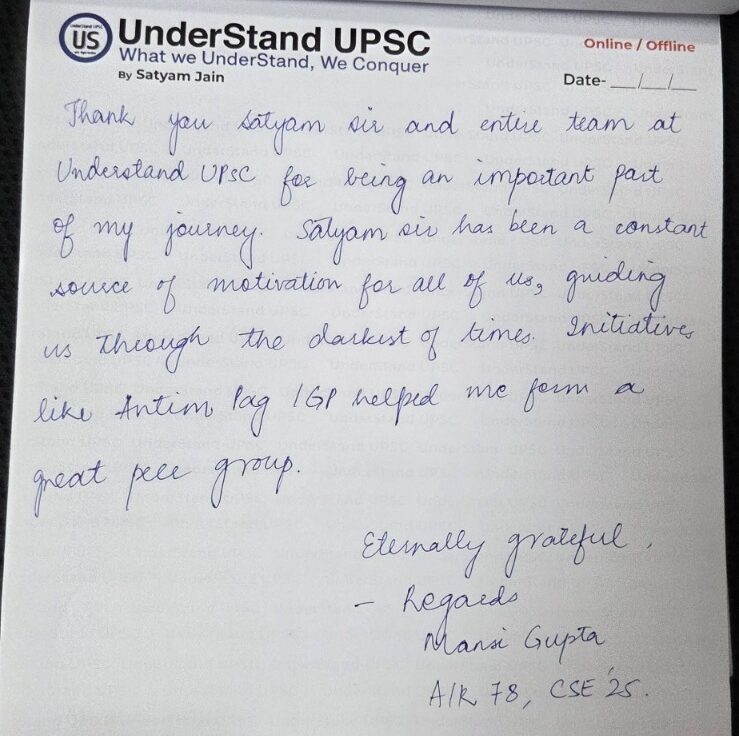 US
UnderStand UPSC
What we UnderStand, We Conquer
By Satyam Jain
Online / Offline
Date- __/__/__
Thank you Satyam sir and entire team at
Understand UPSC for being an important part
of my journey. Satyam sir has been a constant
source of motivation for all of us, guiding
us through the darkest of times. Initiatives
like Antim Pag IGP helped me form a
great peer group.
Eternally grateful,
- Regards
Mansi Gupta
AIR 78, CSE '25.